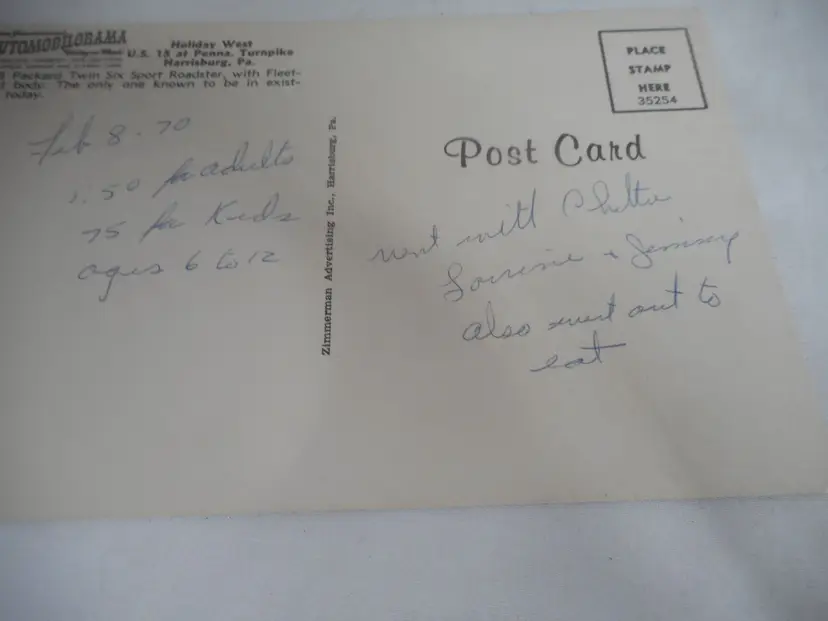 AUTOMOBILORAMA
Holiday West
U.S. 15 at Penna. Turnpike
Harrisburg, Pa.
Packard Twin Six Sport Roadster, with Fleet-
body. The only one known to be in exist-
today.
Feb 8 - 70
1.50 for adults
75 for Kids
ages 6 to 12
Zimmerman Advertising Inc., Harrisburg, Pa.
PLACE
STAMP
HERE
35254
Post Card
went with
Lorraine +
also went out to
eat